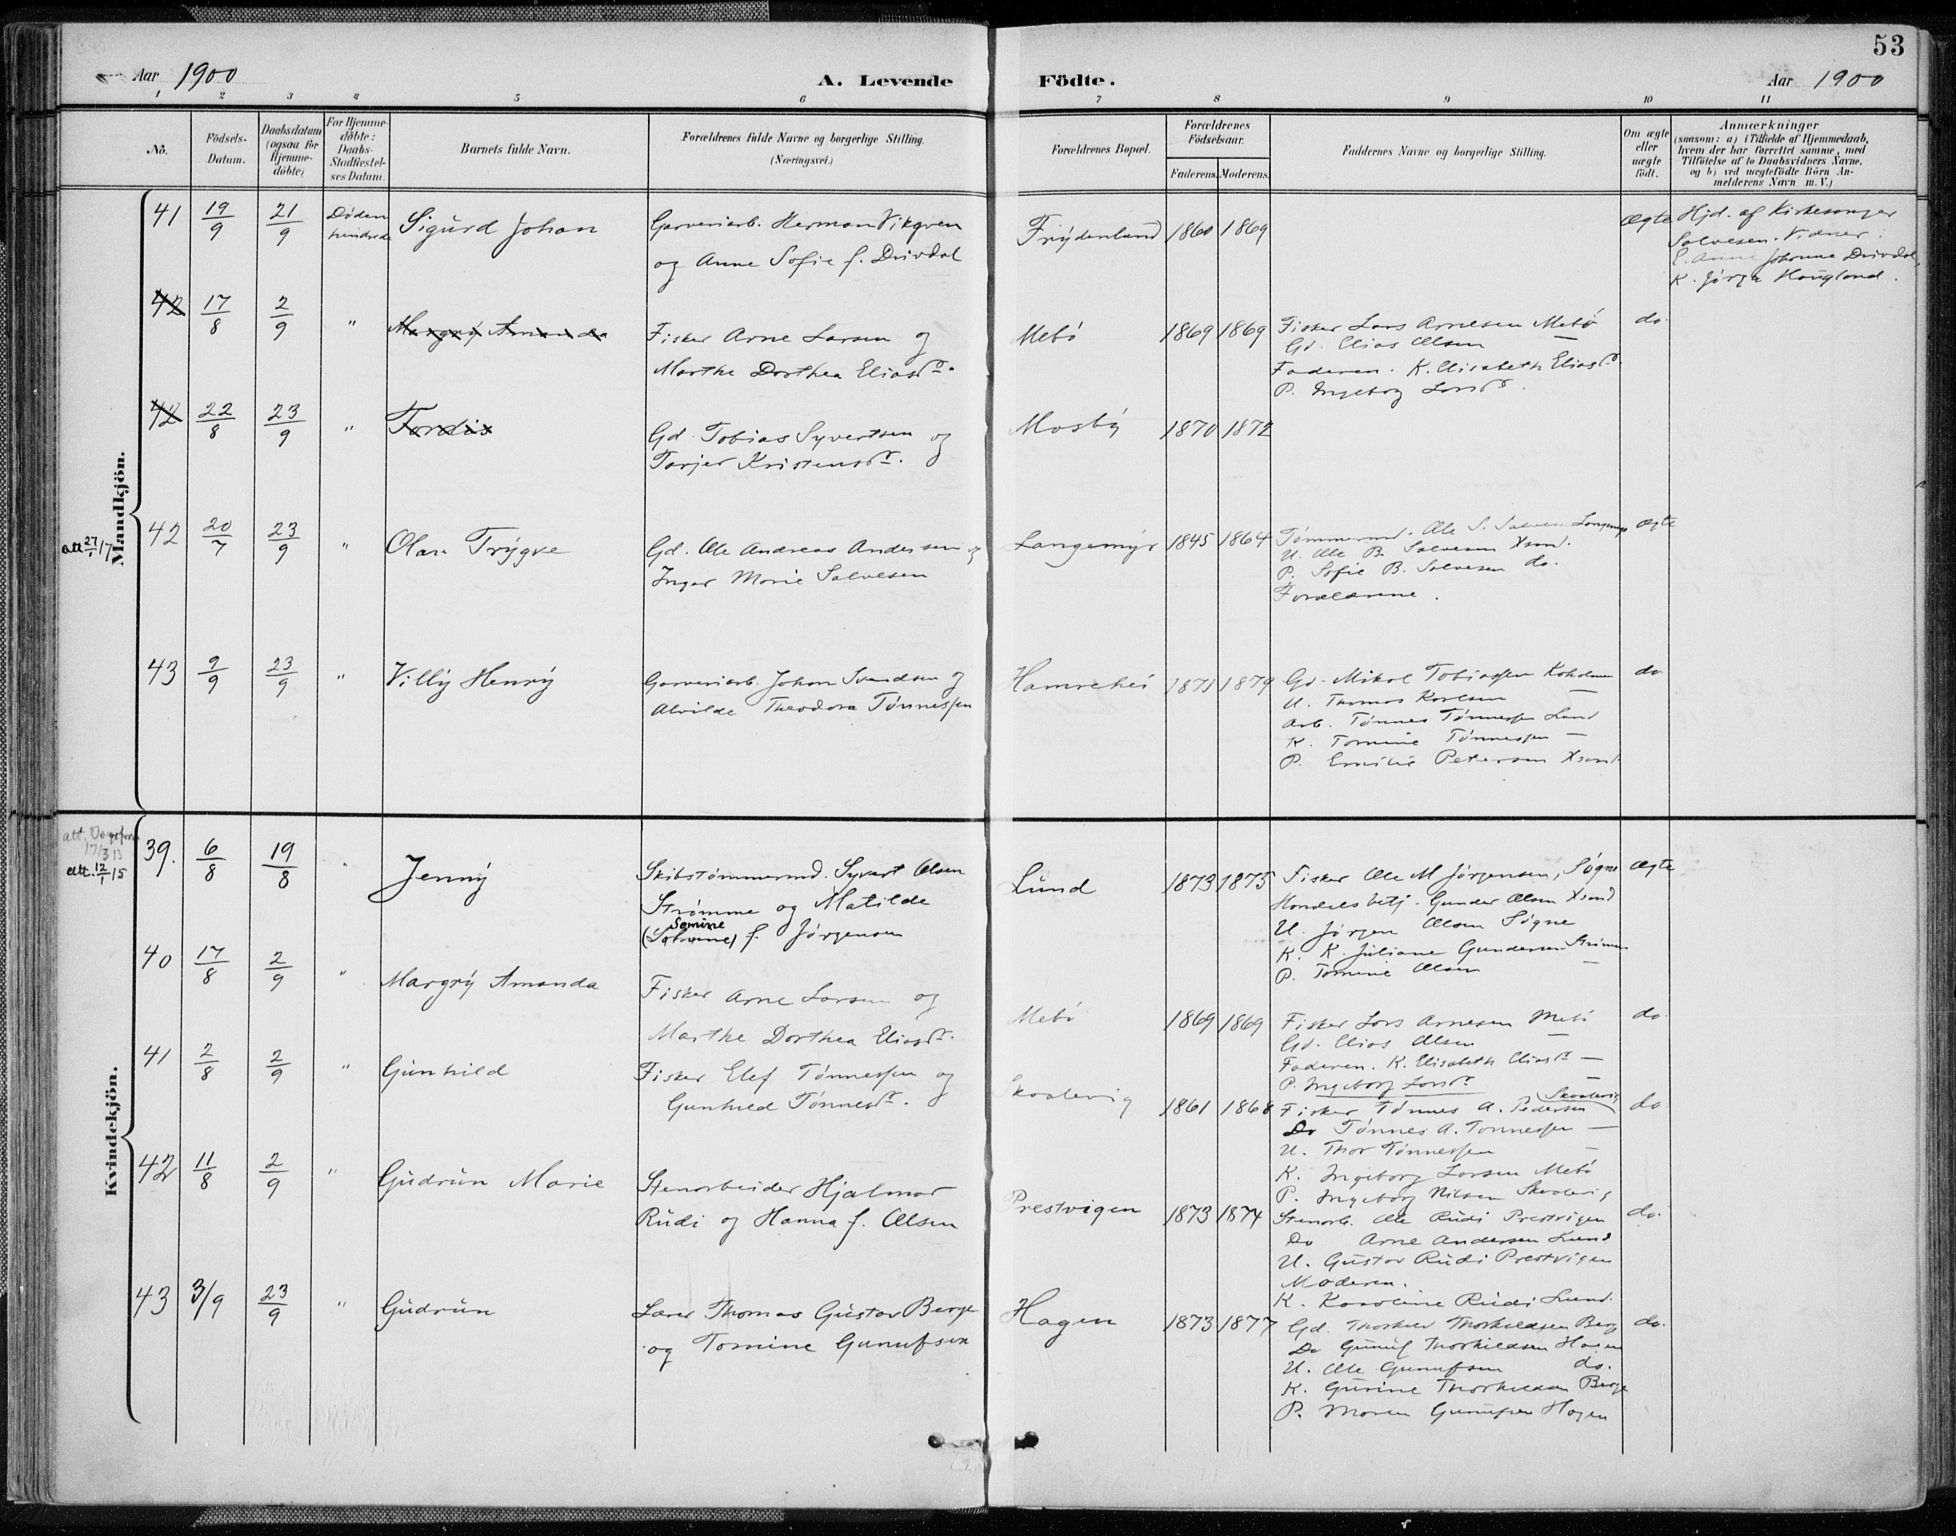 53
Aar 1900 A. Levende Födte. Aar 1900
1 2 3 4 5 6 7 8 9 10 11
No.
Födsels-
Datum.
Daabsdatum
(ogsaa for
Hjemme-
döbte)
For Hjemme-
döbte:
Daabs-
Stadfæstel-
ses Datum.
Barnets fulde Navn.
Forældrenes fulde Navne og borgerlige Stilling.
(Næringsvei.)
Forældrenes Bopæl.
Forældrenes
Födselsaar.
Faderens. Moderens.
Faddernes Navne og borgerlige Stilling.
Om ægte
eller
uægte
födt.
Anmærkninger
(saasom: a) i Tilfælde af Hjemmedaab,
hvem der har forrettet samme, med
Tilföielse af to Daabsvidners Navne.
og b) ved uægtefödte Börn An-
melderens Navn m. V.)
Mandkjön.
41 19/9 21/9 Døden hindrede Sigurd Johan
Garveriarb. Herman Vikgren
og Anne Sofie f. Drivdal
Frydenlund 1860 1869 Ægte
Hjd. af Kirkesanger
Salvesen. Vidner:
E. Anna Johanna Drivdal,
K. Jørga Haugland.
42 17/8 2/9 " Margry Amanda
Fisker Arne Larsen og
Marthe Dorthea Eliasdr.
Mebø 1869 1869
Fisker Lars Arnesen Mebø
Gd. Elias Olsen —
Faderen. K. Elisabeth Eliasdr
P. Ingeborg Larsdr.
do.
42 22/8 23/9 " Tordis
Gd. Tobias Syvertsen og
Tarjer Kristensdr.
Mosby 1870 1872
att 27/1 17
42 20/7 23/9 " Olav Trygve
Gd. Ole Andreas Andersen og
Inger Marie Salvesen
Langemyr 1845 1864
Tømmermd. Ole S. Salvesen Langemyr
U. Ole B. Salvesen Xsand.
P. Sofie B. Salvesen do.
Forældrene.
ægte
43 9/9 23/9 " Villy Henry
Garveriarb. Johan Svendsen og
Alvilde Theodora Tønnessen
Hamrehei 1871 1879
Gd. Mikal Tobiassen Koholmen
U. Thomas Karlsen —
Arb. Tønnes Tønnessen Lund
K. Tomine Tønnessen —
P. Emilie Petersen Xsand
do
Kvindekjön.
att.
17/3 13
att. 12/1 15
39. 6/8 19/8 " Jenny
Skibstømmermd. Syvert Olsen
Strømme og Matilde
Samine
f. Jørgensen
Lund 1873 1875
Fisker Ole M Jørgensen, Søgne
Handelsbetj. Gunder Olsen Xsand
U. Jørgen Olsen Søgne
K. K. Juliane Gundersen Strømme
P. Tomine Olsen —
Ægte
40 17/8 2/9 " Margry Amanda
Fisker Arne Larsen og
Marthe Dorthea Eliasdr.
Mebø 1869 1869
Fisker Lars Arnesen Mebø
Gd. Elias Olsen —
Faderen. K. Elisabeth Eliasdr —
P. Ingeborg Larsdr —
do.
41 2/8 2/9 " Gunhild
Fisker Elef Tønnessen og
Gunhild Tønnesdr.
Skaalevig 1861 1868
Skaalevig
Fisker Tønnes A. Pedersen
Do Tønnes A. Tønnessen —
U. Thor Tønnessen —
K. Ingeborg Larsen Mebø
P. Ingeborg Nilsen Skaalevig
do
42 11/8 2/9 " Gudrun Marie
Stenarbeider Hjalmar
Rudi og Hanna f. Olsen
Prestvigen 1873 1874
Stenarb. Ole Rudi Prestvigen
Do Arne Andersen Lund
U. Gustav Rudi Prestvigen
Moderen.
K. Karoline Rudi Lund.
do.
43 3/9 23/9 " Gudrun
Lærer Thomas Gustav Berge
og Tomine Gunufsen
Hagen 1873 1877
Gd. Thorkel Thorkildsen Berg
Do Gunuf Thorkildsen Hagen
U. Ole Gunufsen do.
K. Gurine Thorkildsen Berge
P. Maren Gunufsen Hagen
do.